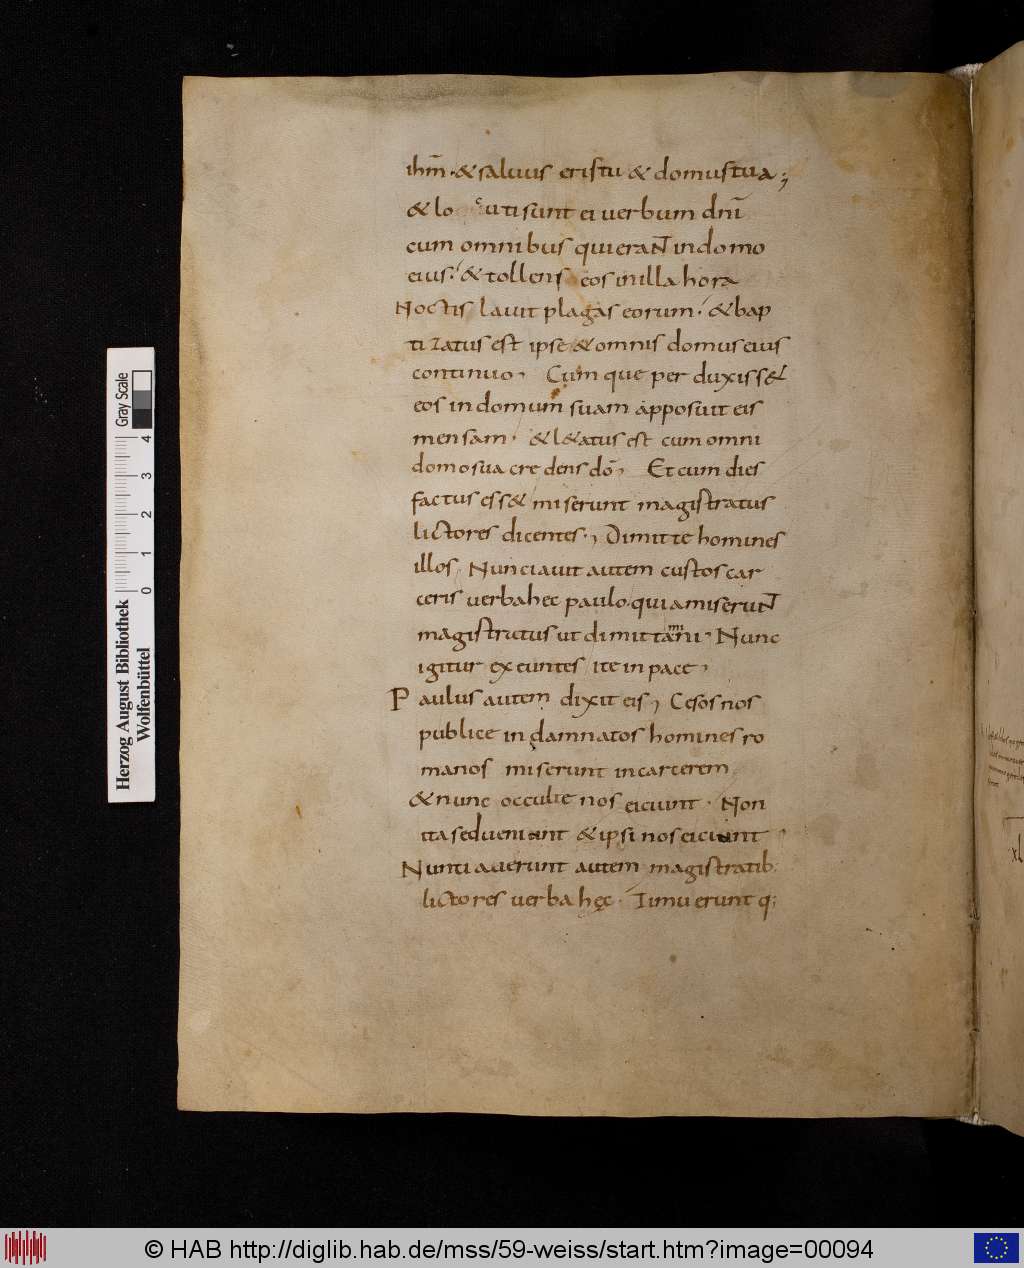 ihm̅ · & saluus eristu & domustua ;
& lo cuti sunt ei uerbum dn̅i
cum omnibus quierant in domo
eius · & tollens eos in illa hora
Noctis lauit plagas eorum · & bap
tizatus est ipse & omnis domus eius
continuo , Cum que per duxiss&
eos in domum suam apposuit eis
mensam · & l&atus est cum omni
domo sua credens do̅ , Et cum dies
factus ess& miserunt magistratus
lictores dicentes · , Dimitte homines
illos · Nunciauit autem custos car
ceris uerba hec paulo · quia miserunt
magistratus ut dimittamini · Nunc
igitur exeuntes ite in pace ,
Paulus autem dixit eis , Cesos nos
publice indamnatos homines ro
manos miserunt in carcerem
& nunc occulte nos eiciunt · Non
ita sed ueniant & ipsi nos eiciant ,
Nuntiauerunt autem magistratib;
lictores uerba hęc · Timuerunt q;
Herzog August Bibliothek
Wolfenbüttel
0 1 2 3 4
Gray Scale
© HAB http://diglib.hab.de/mss/59-weiss/start.htm?image=00094